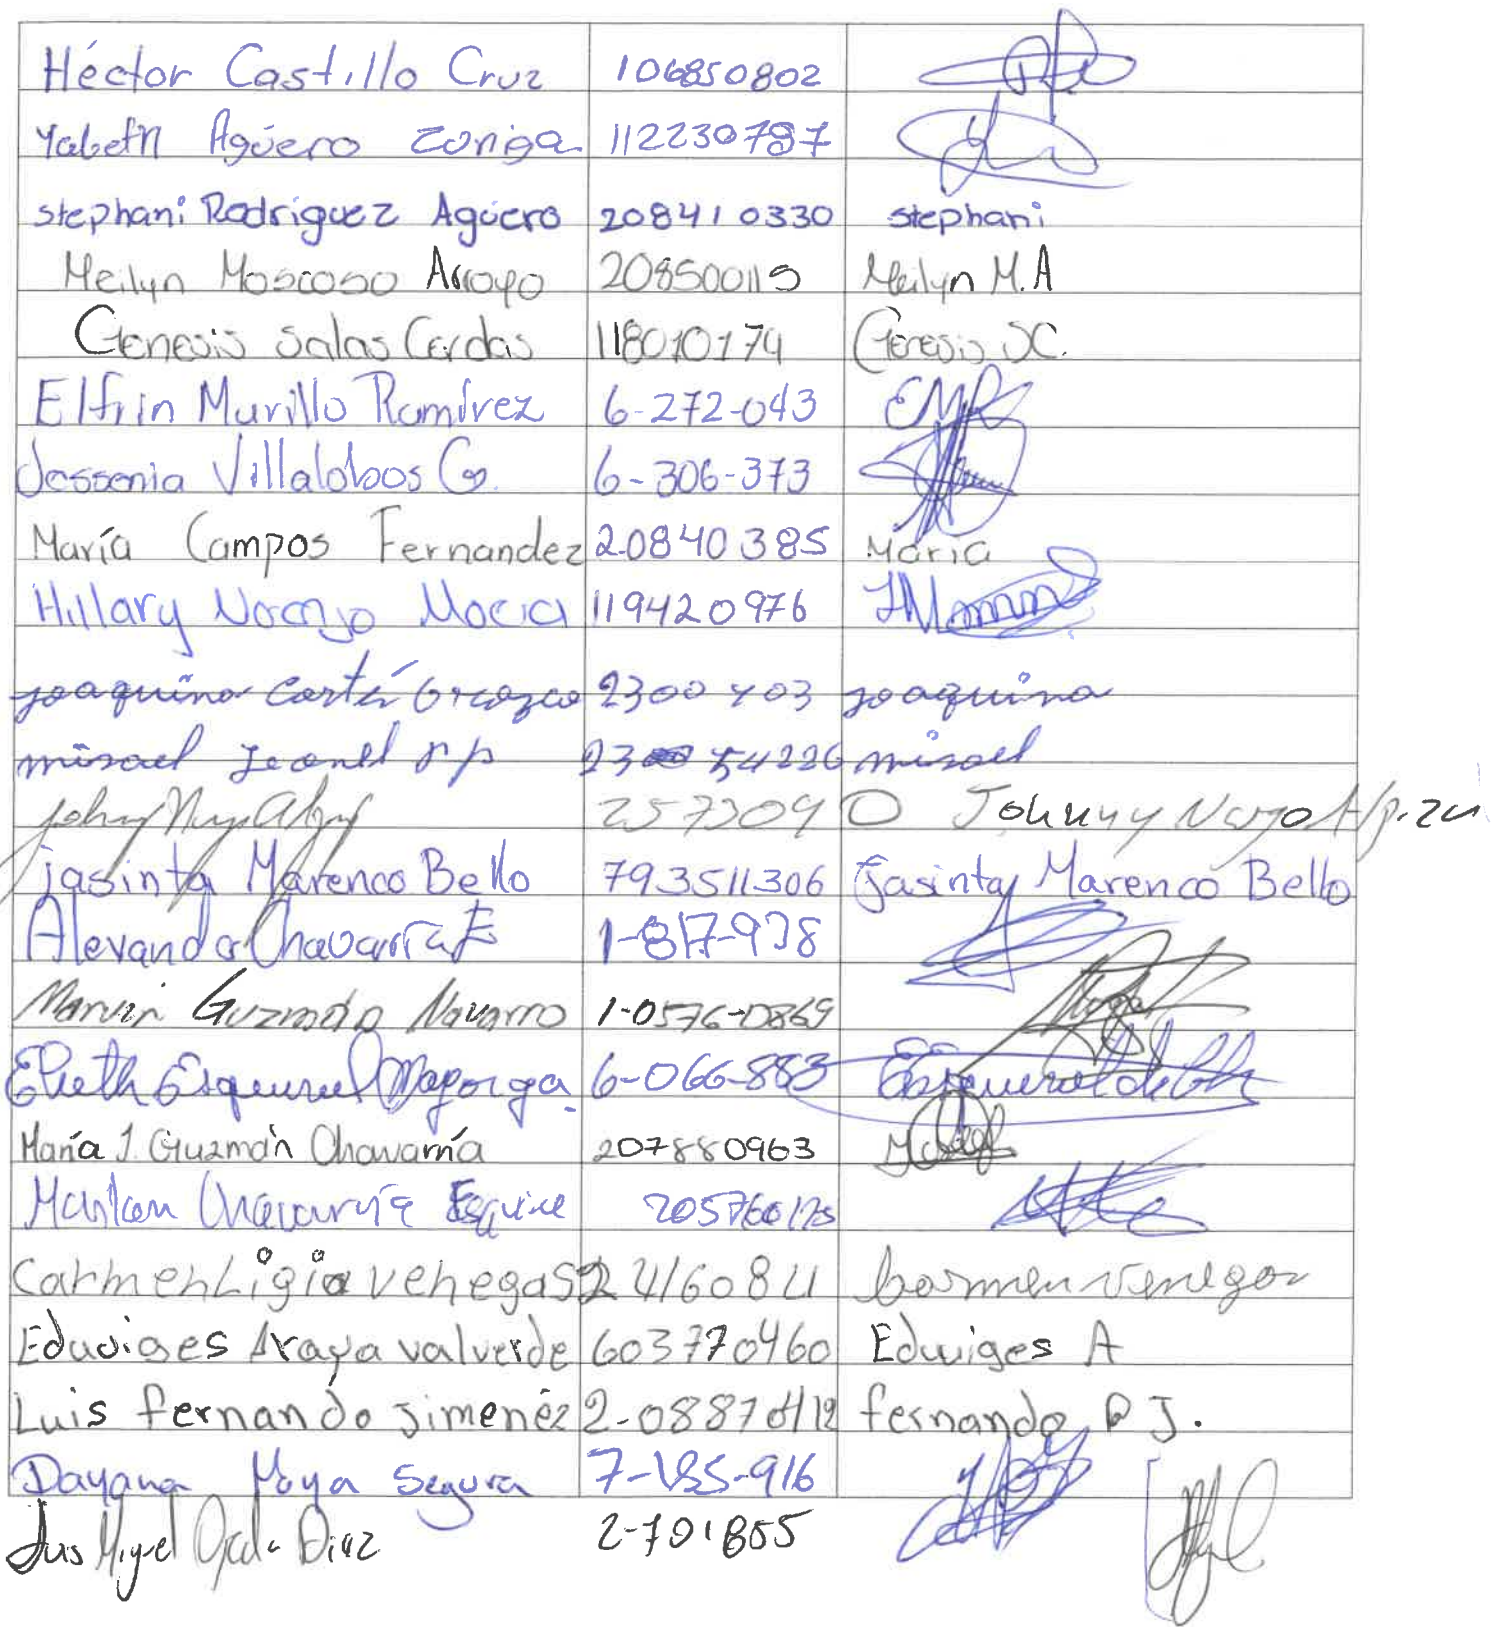 Héctor Castillo Cruz 106850802
Yabeth Agüero Zuñiga 112230787
stephani Rodríguez Agüero 208410330 stephani
Meilyn Moscoso Arroyo 208500119 Meilyn M.A
Genesis Salas Cerdas 118010174 Genesis SC.
Elfrin Murillo Ramírez 6-272-043 EMR
Jessenia Villalobos G. 6-306-373
María Campos Fernandez 20840385 María
Hillary Naranjo Macia 119420976
joaquina Cortés Orozco 2300403 joaquina
misael Leonel 54226 misael
2573090 Johnny
jasinta Marenco Bello 793511306 Jasinta Marenco Bello
Alexander Chavarría E 1-817-938
Marvin Guzmán Navarro 1-0576-0869
Elieth Esquivel Mayorga 6-066-883 Esquivel
María J. Guzmán Chavarría 207880963
Chavarría Esquivel 205760125
Carmen Ligia Venegas 2416084 Carmen venegas
Eduviges Araya valverde 603770460 Eduviges A
Luis fernando Jimenéz fernando J.
Dayana Moya Segura 7-185-916
Luis Miguel Díaz 2-701855